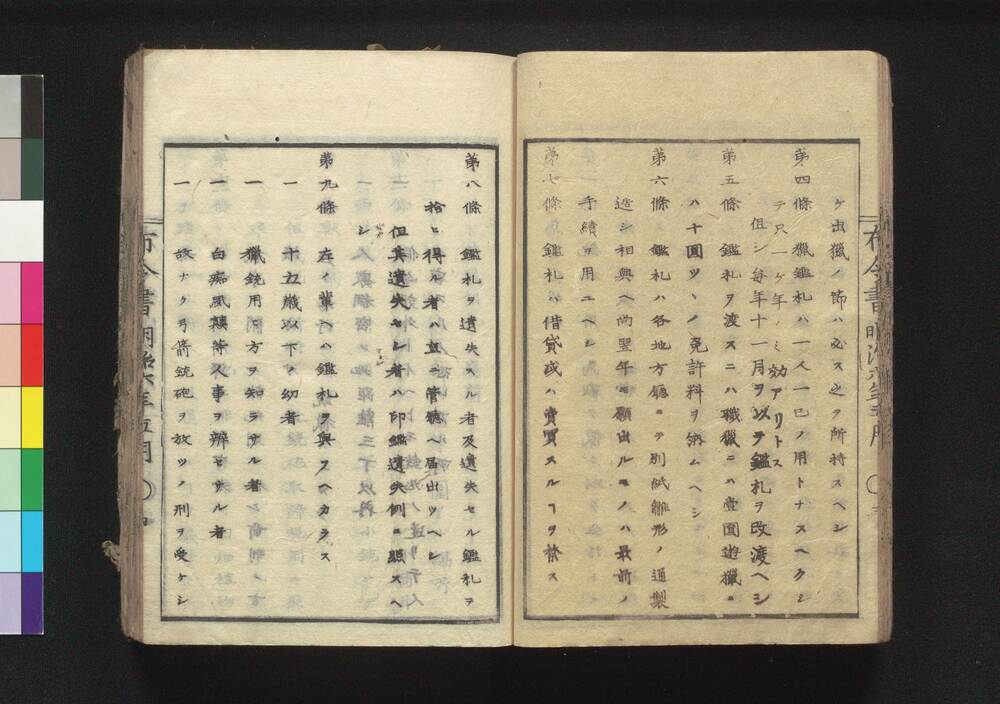 ケ出獵ノ節ハ必ス之ヲ所持スヘシ
第四條 獵鑑札ハ一人一已ノ用トナスヘクシ
テ只一ヶ年ノミ効アリトス
但シ毎年十一月ヲ以テ鑑札ヲ改渡ヘシ
第五條 鑑札ヲ渡スニハ職獵ニハ壹圓遊獵ニ
ハ十圓ツヽノ免許料ヲ納ムヘシ
第六條 鑑札ハ各地方廳ニテ別紙雛形ノ通製
造シ相與ヘ尚翌年モ願出ルモノハ最前ノ
手續ヲ用ユヘシ
第七條 鑑札ハ借貸或ハ賣買スルヿヲ禁ス
布令書 明治六年五月 〇
第八條 鑑札ヲ遺失スル者及遺失セル鑑札ヲ
拾ヒ得ル者ハ直ニ管廳ヘ届出ツヘシ
但其遺失セシ者ハ印鑑遺失例ニ照スヘ
シ
第九條 左ノ輩ヘハ鑑札ヲ與フヘカラス
一 十五歳以下ノ幼者
一 獵銃用ヒ方ヲ知ラサル者
一 白痴風癲等人事ヲ辨セサル者
一 故ナク弓箭銃砲ヲ放ツノ刑ヲ受ケシ
布令書 明治六年五月 〇